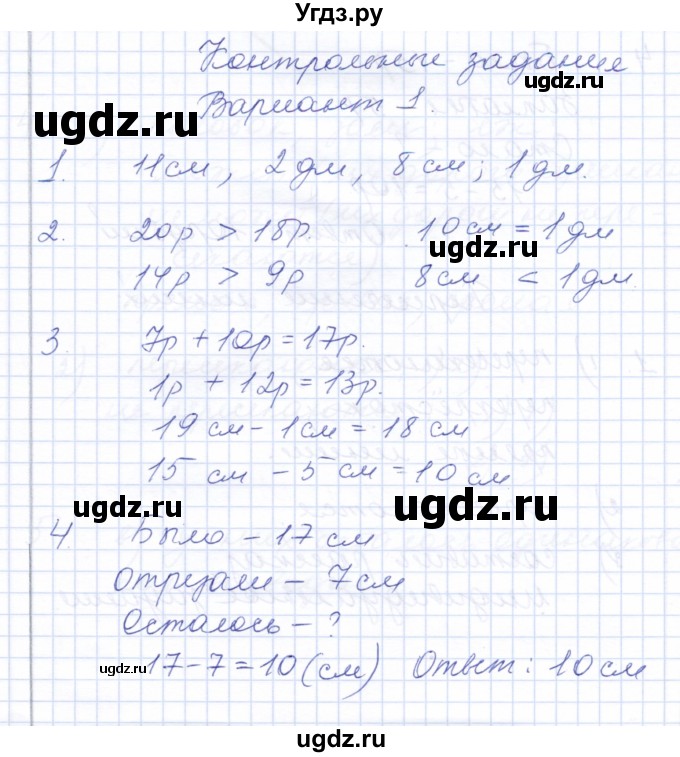 Угдз.ру
Контрольные задание
Вариант 1.
ugdz.ru
1. 11см, 2дм, 8см; 1дм.
2. 20р > 18р 10см = 1дм
ugdz.ru
14р > 9р 8см < 1дм.
ugdz.ru
3 7р + 10р = 17р.
1р + 12р = 13р.
19см - 1см = 18см
15 см - 5см = 10см
ugdz.ru ugdz.ru
4 Было - 17см
Отрезали - 7см
Осталось - ?
ugdz.ru 17-7=10(см) Ответ: 10см
ugdz.ru